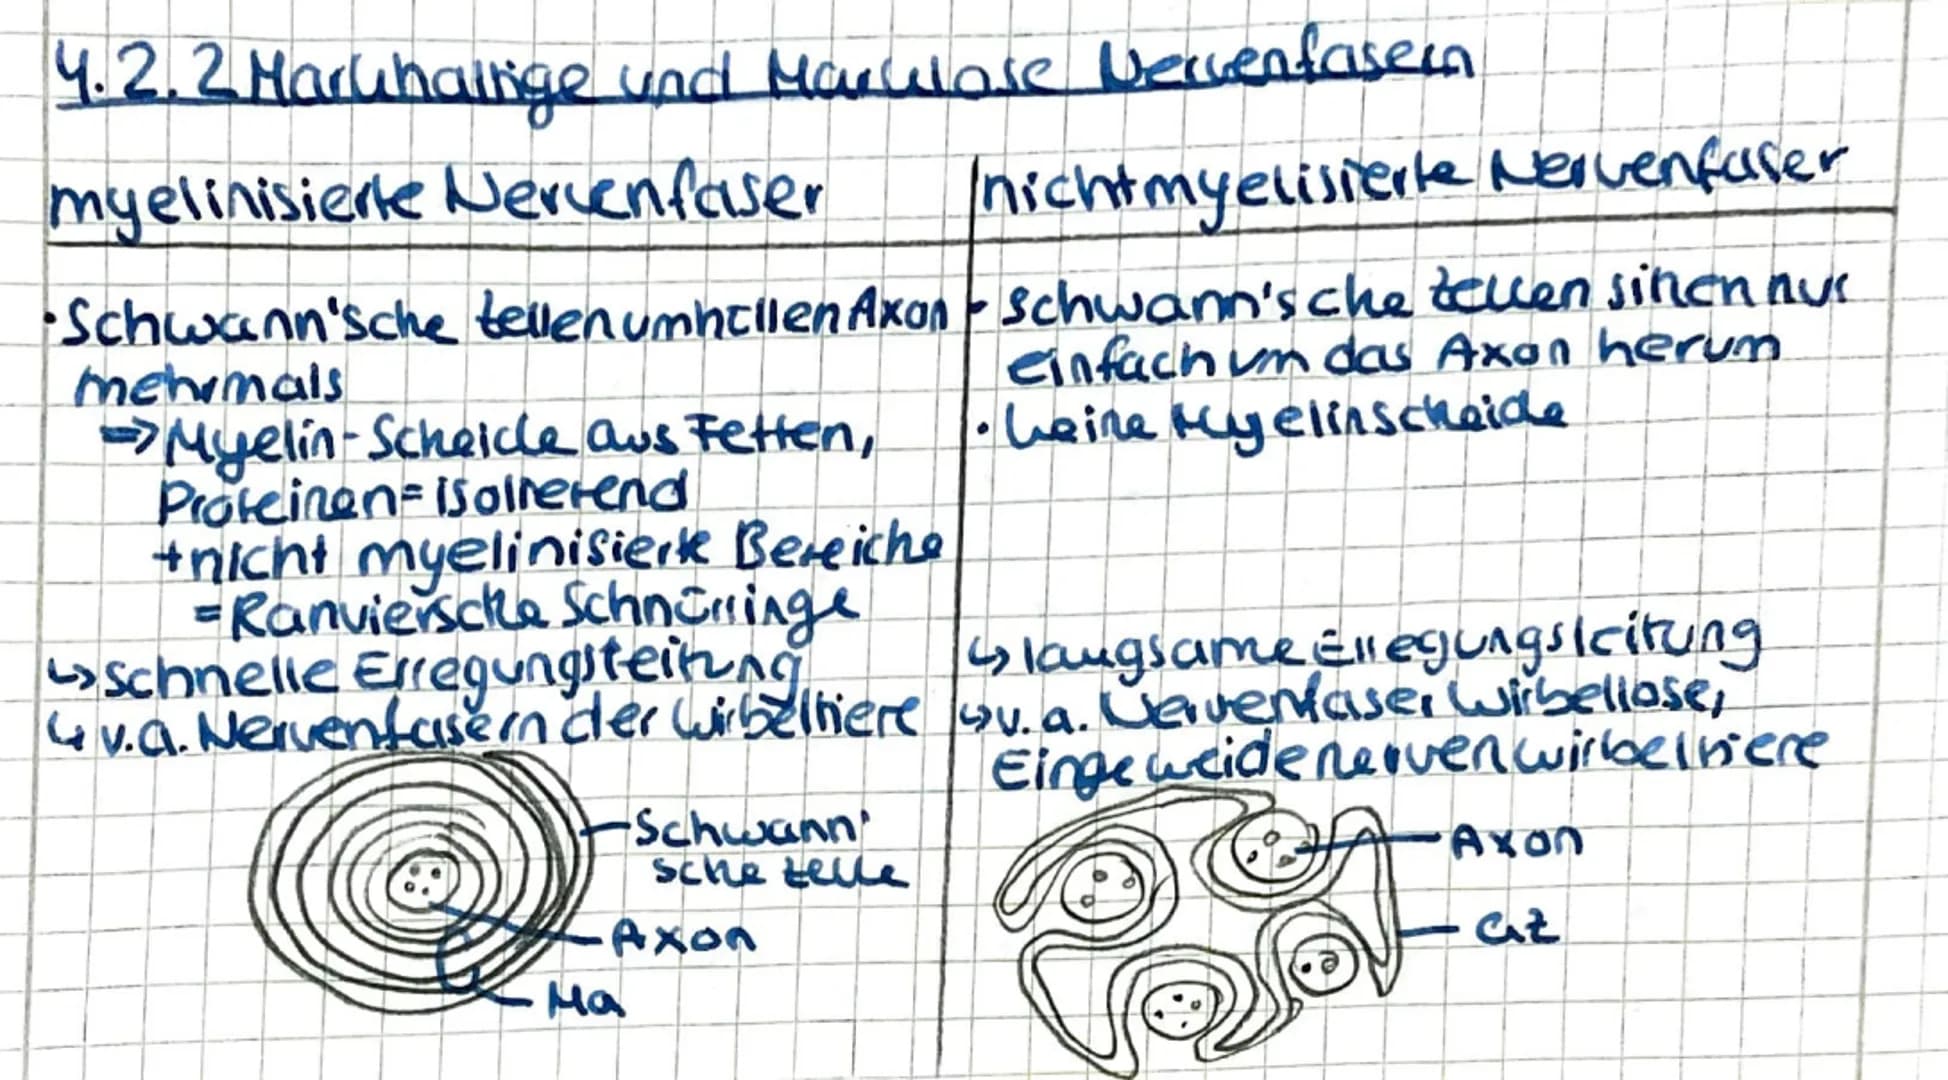 4.2.2 Markhaltige und Marklose Nervenfasern
myelinisierte Nervenfaser
· Schwann'sche Zellen umhüllen Axon
mehrmals
⇒ Myelin-Scheide aus Fetten,
Proteinen = isolierend
+ nicht myelinisierte Bereiche
= Ranviersche Schnürringe
↳ schnelle Erregungsleitung
↳ v.a. Nervenfasern der Wirbeltiere
Schwann'
sche Zelle
Axon
Ma
nichtmyelisierte Nervenfaser
· Schwann'sche Zellen sitzen nur
einfach um das Axon herum
· keine Myelinscheide
↳ langsame Erregungsleitung
↳ v.a. Nervenfaser Wirbellose,
Eingeweidenerven Wirbeltiere
Axon
GZ